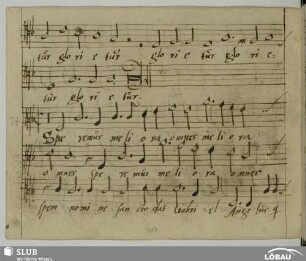 tur glo ri e tur glo ri e tur glo ri e-
tur glo ri e tur.
Spe remus me li o ra omnes me li o ra
omnes spe re mus me li o ra omnes
spem no mi ne san cto dat Gabri el
SLUB
Wir führen Wissen.
LÖBAU